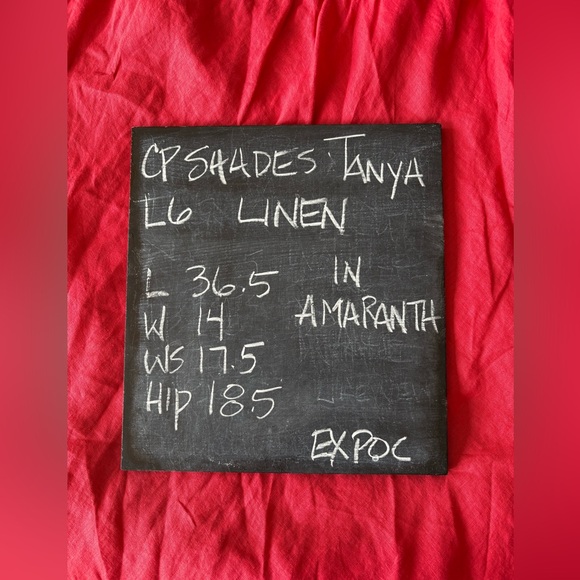 CP SHADES TANYA
LG LINEN
L 36.5
W 14
WS 17.5
Hip 18.5
IN
AMARANTH
EXPOC